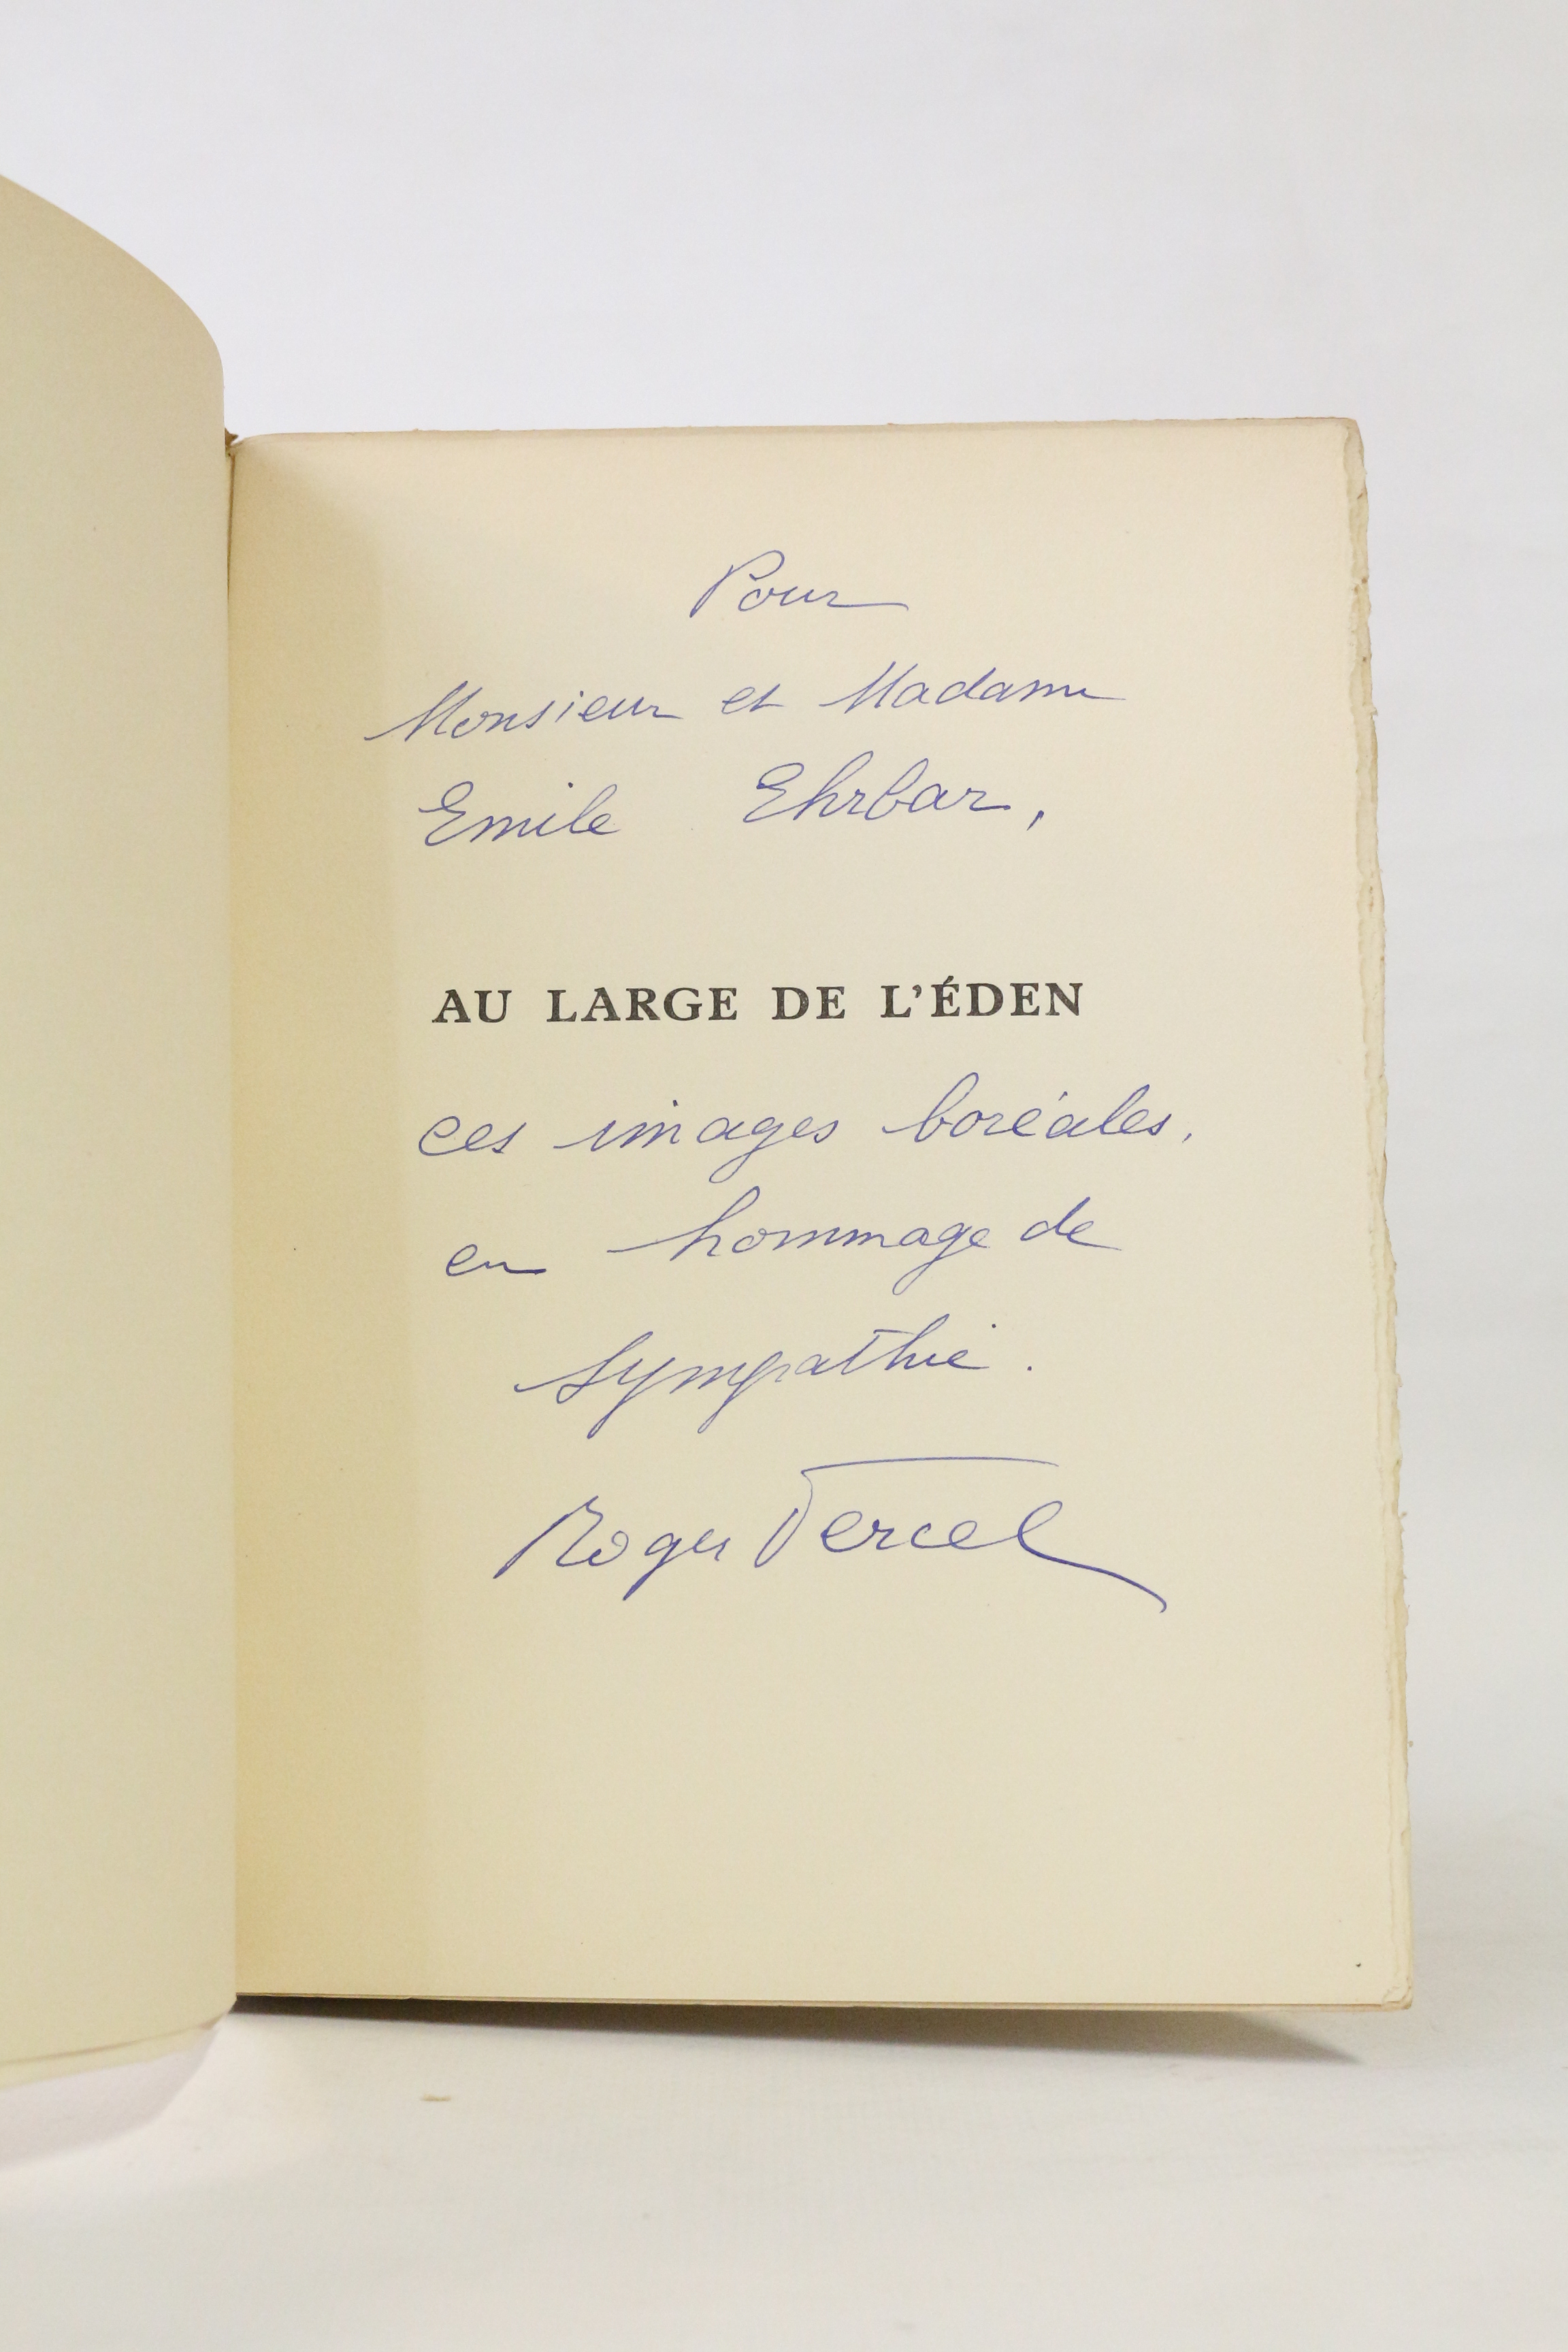 Pour
Monsieur et Madame
Emile Ehrbar,
AU LARGE DE L'ÉDEN
ces images boréales,
en hommage de
sympathie.
Roger Vercel